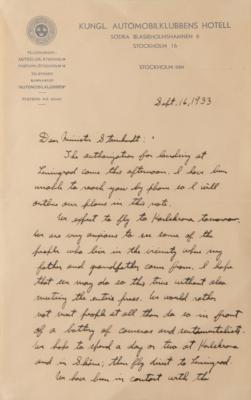 KUNGL. AUTOMOBILKLUBBENS HOTELL
SÖDRA BLASIEHOLMSHAMNEN 6
STOCKHOLM 16
STOCKHOLM DEN
"AUTOMOBILKLUBBEN"
Sept. 16, 1933
Dear Minister Steinhardt:
The authorization for landing at
Leningrad came this afternoon. I have been
unable to reach you by phone so I will
outline our plans in this note.
We expect to fly to Karlskrona tomorrow.
We are very anxious to see some of the
people who live in the vicinity where my
father and grandfather came from. I hope
that we may do so this time without also
meeting the entire press. We would rather
not meet people at all than do so in front
of a battery of cameras and sentimentalists.
We hope to spend a day or two at Karlskrona
and in Skåne; then fly direct to Leningrad.
We have been in contact with the